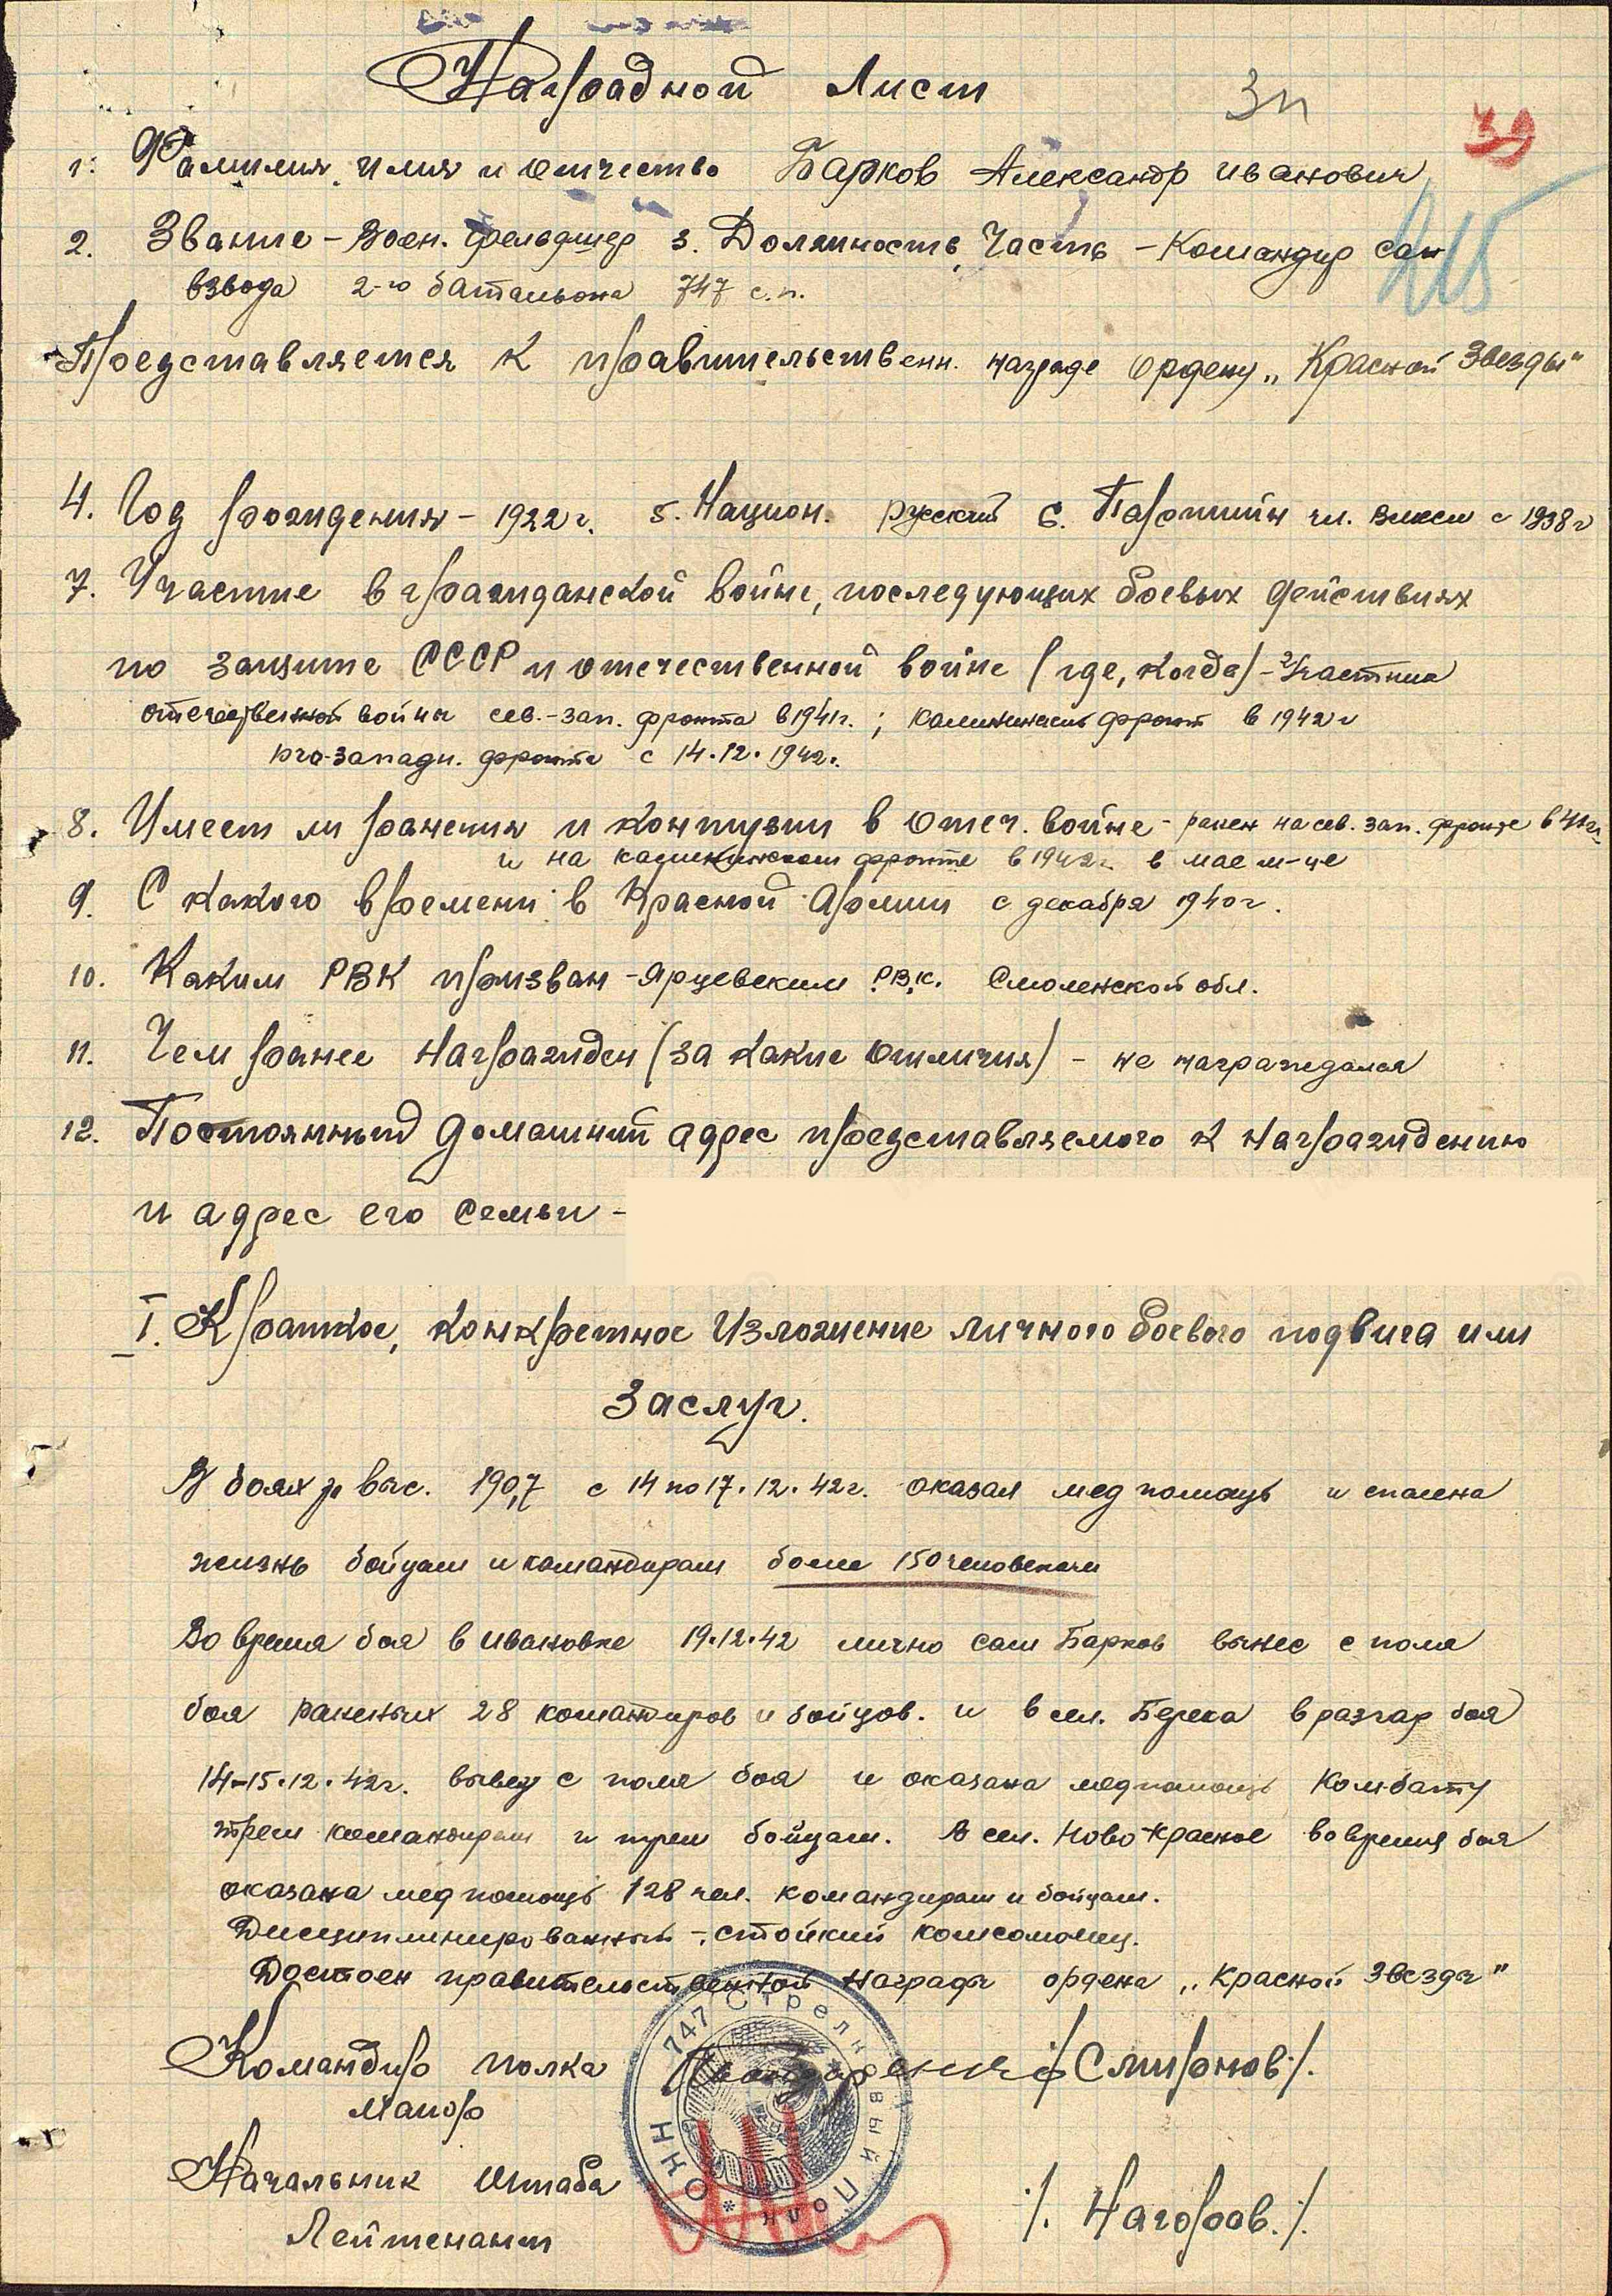 Наградной Лист
3п
39
1. Фамилия, имя и отчество Барков Александр Иванович
215
2. Звание - Воен. фельдшер 3. Должность, Часть - Командир сан
взвода 2-го батальона 747 с.п.
Представляется к правительственн. награде Ордену „Красной Звезды"
4. Год рождения - 1922 г. 5. Национ. русский 6. Партийн чл. ВЛКСМ с 1938 г
7. Участие в гражданской войне, последующих боевых действиях
по защите СССР и отечественной войне (где, когда) - Участник
отечественной войны сев.-зап. фронта в 1941 г. ; калининский фронт в 1942 г
юго-западн. фронте с 14.12.1942 г.
8. Имеет ли ранения и контузии в отеч. войне - ранен на сев. зап. фронте в 41 г.
и на калининском фронте в 1942 г. в мае м-це
9. С какого времени в Красной Армии с декабря 1940 г.
10. Каким РВК призван - Ярцевским Р.В.К. Смоленской обл.
11. Чем ранее награжден (за какие отличия) - не награждался
12. Постоянный домашний адрес представляемого к награждению
и адрес его семьи -
I. Краткое, конкретное изложение личного боевого подвига или
заслуг.
В боях за выс. 190,7 с 14 по 17.12.42 г. оказал мед помощь и спасена
жизнь бойцам и командирам более 150 человекам
Во время боя в Ивановке 19.12.42 лично сам Барков вынес с поля
боя раненых 28 командиров и бойцов. и в сел. Берека в разгар боя
14-15.12.42 г. вывез с поля боя и оказана медпомощь комбату
трем командирам и трем бойцам. В сел. Ново Красное во время боя
оказана мед помощь 128 чел. командирам и бойцам.
Дисциплинированный - стойкий комсомолец.
Достоен правительственной награды ордена „Красной Звезды"
Командир полка /Смирнов/.
майор
Начальник штаба
Лейтенант /. Нагоров./
747 Стрелковый Полк * НКО